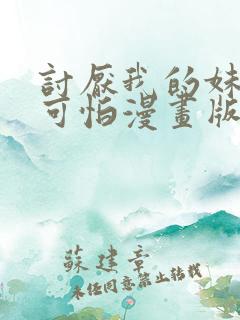 討厭我的妹
可怕漫畫版
蘇建章
未經同意禁止轉載